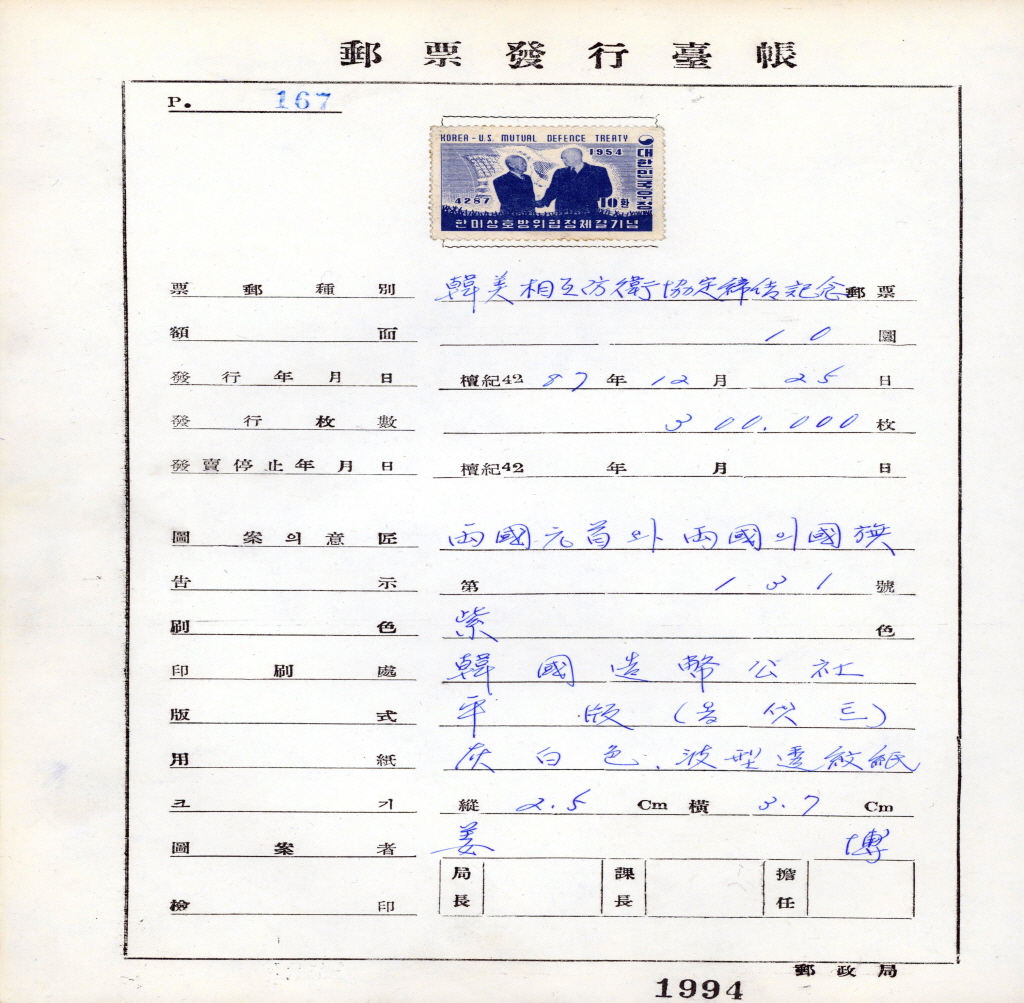 郵票發行臺帳
P. 167
KOREA - U.S. MUTUAL DEFENCE TREATY
1954
대한민국우표
4287
10환
한미상호방위협정체결기념
票郵種別 韓美相互防衛協定締结記念郵票
額面 10圜
發行年月日 檀紀4287年12月25日
發行枚數 300.000枚
發賣停止年月日 檀紀42 年 月 日
圖案의意匠 兩國元首와 兩國의國旗
告示 第131號
刷色 紫色
印刷處 韓國造幣公社
版式 平版(옵셋트)
用紙 灰白色、波型透紋紙
크기 縱 2.5 Cm 橫 3.7 Cm
圖案者 姜博
檢印 局長 課長 擔任
郵政局
1994